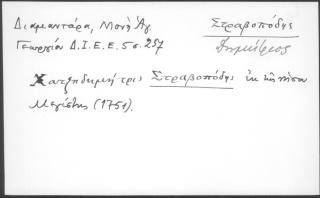 Διαμαντάρα, Μονὴ Ἁγ.
Γεωργίου Δ.Ι.Ε.Ε. 5 σ. 257
Στραβοπόδης
Δημήτριος
Χατζηδημήτρις Στραβοπόδης ἐκ τῆς νήσου
Μεγίστης (1751).